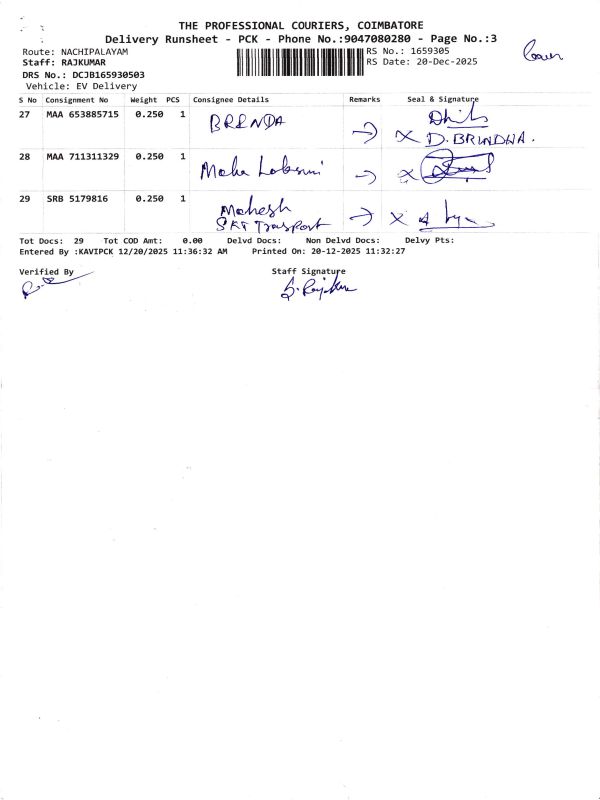 THE PROFESSIONAL COURIERS, COIMBATORE
Delivery Runsheet - PCK - Phone No.:9047080280 - Page No.:3
Route: NACHIPALAYAM
RS No.: 1659305
Staff: RAJKUMAR
RS Date: 20-Dec-2025
DRS No.: DCJB165930503
Vehicle: EV Delivery
S No Consignment No Weight PCS Consignee Details Remarks Seal & Signature
27 MAA 653885715 0.250 1 BRENDA → X D. BRINDHA.
28 MAA 711311329 0.250 1 Maha → X
29 SRB 5179816 0.250 1 Mahesh → X
SKT Trasport
Tot Docs: 29 Tot COD Amt: 0.00 Delvd Docs: Non Delvd Docs: Delvy Pts:
Entered By :KAVIPCK 12/20/2025 11:36:32 AM Printed On: 20-12-2025 11:32:27
Verified By Staff Signature